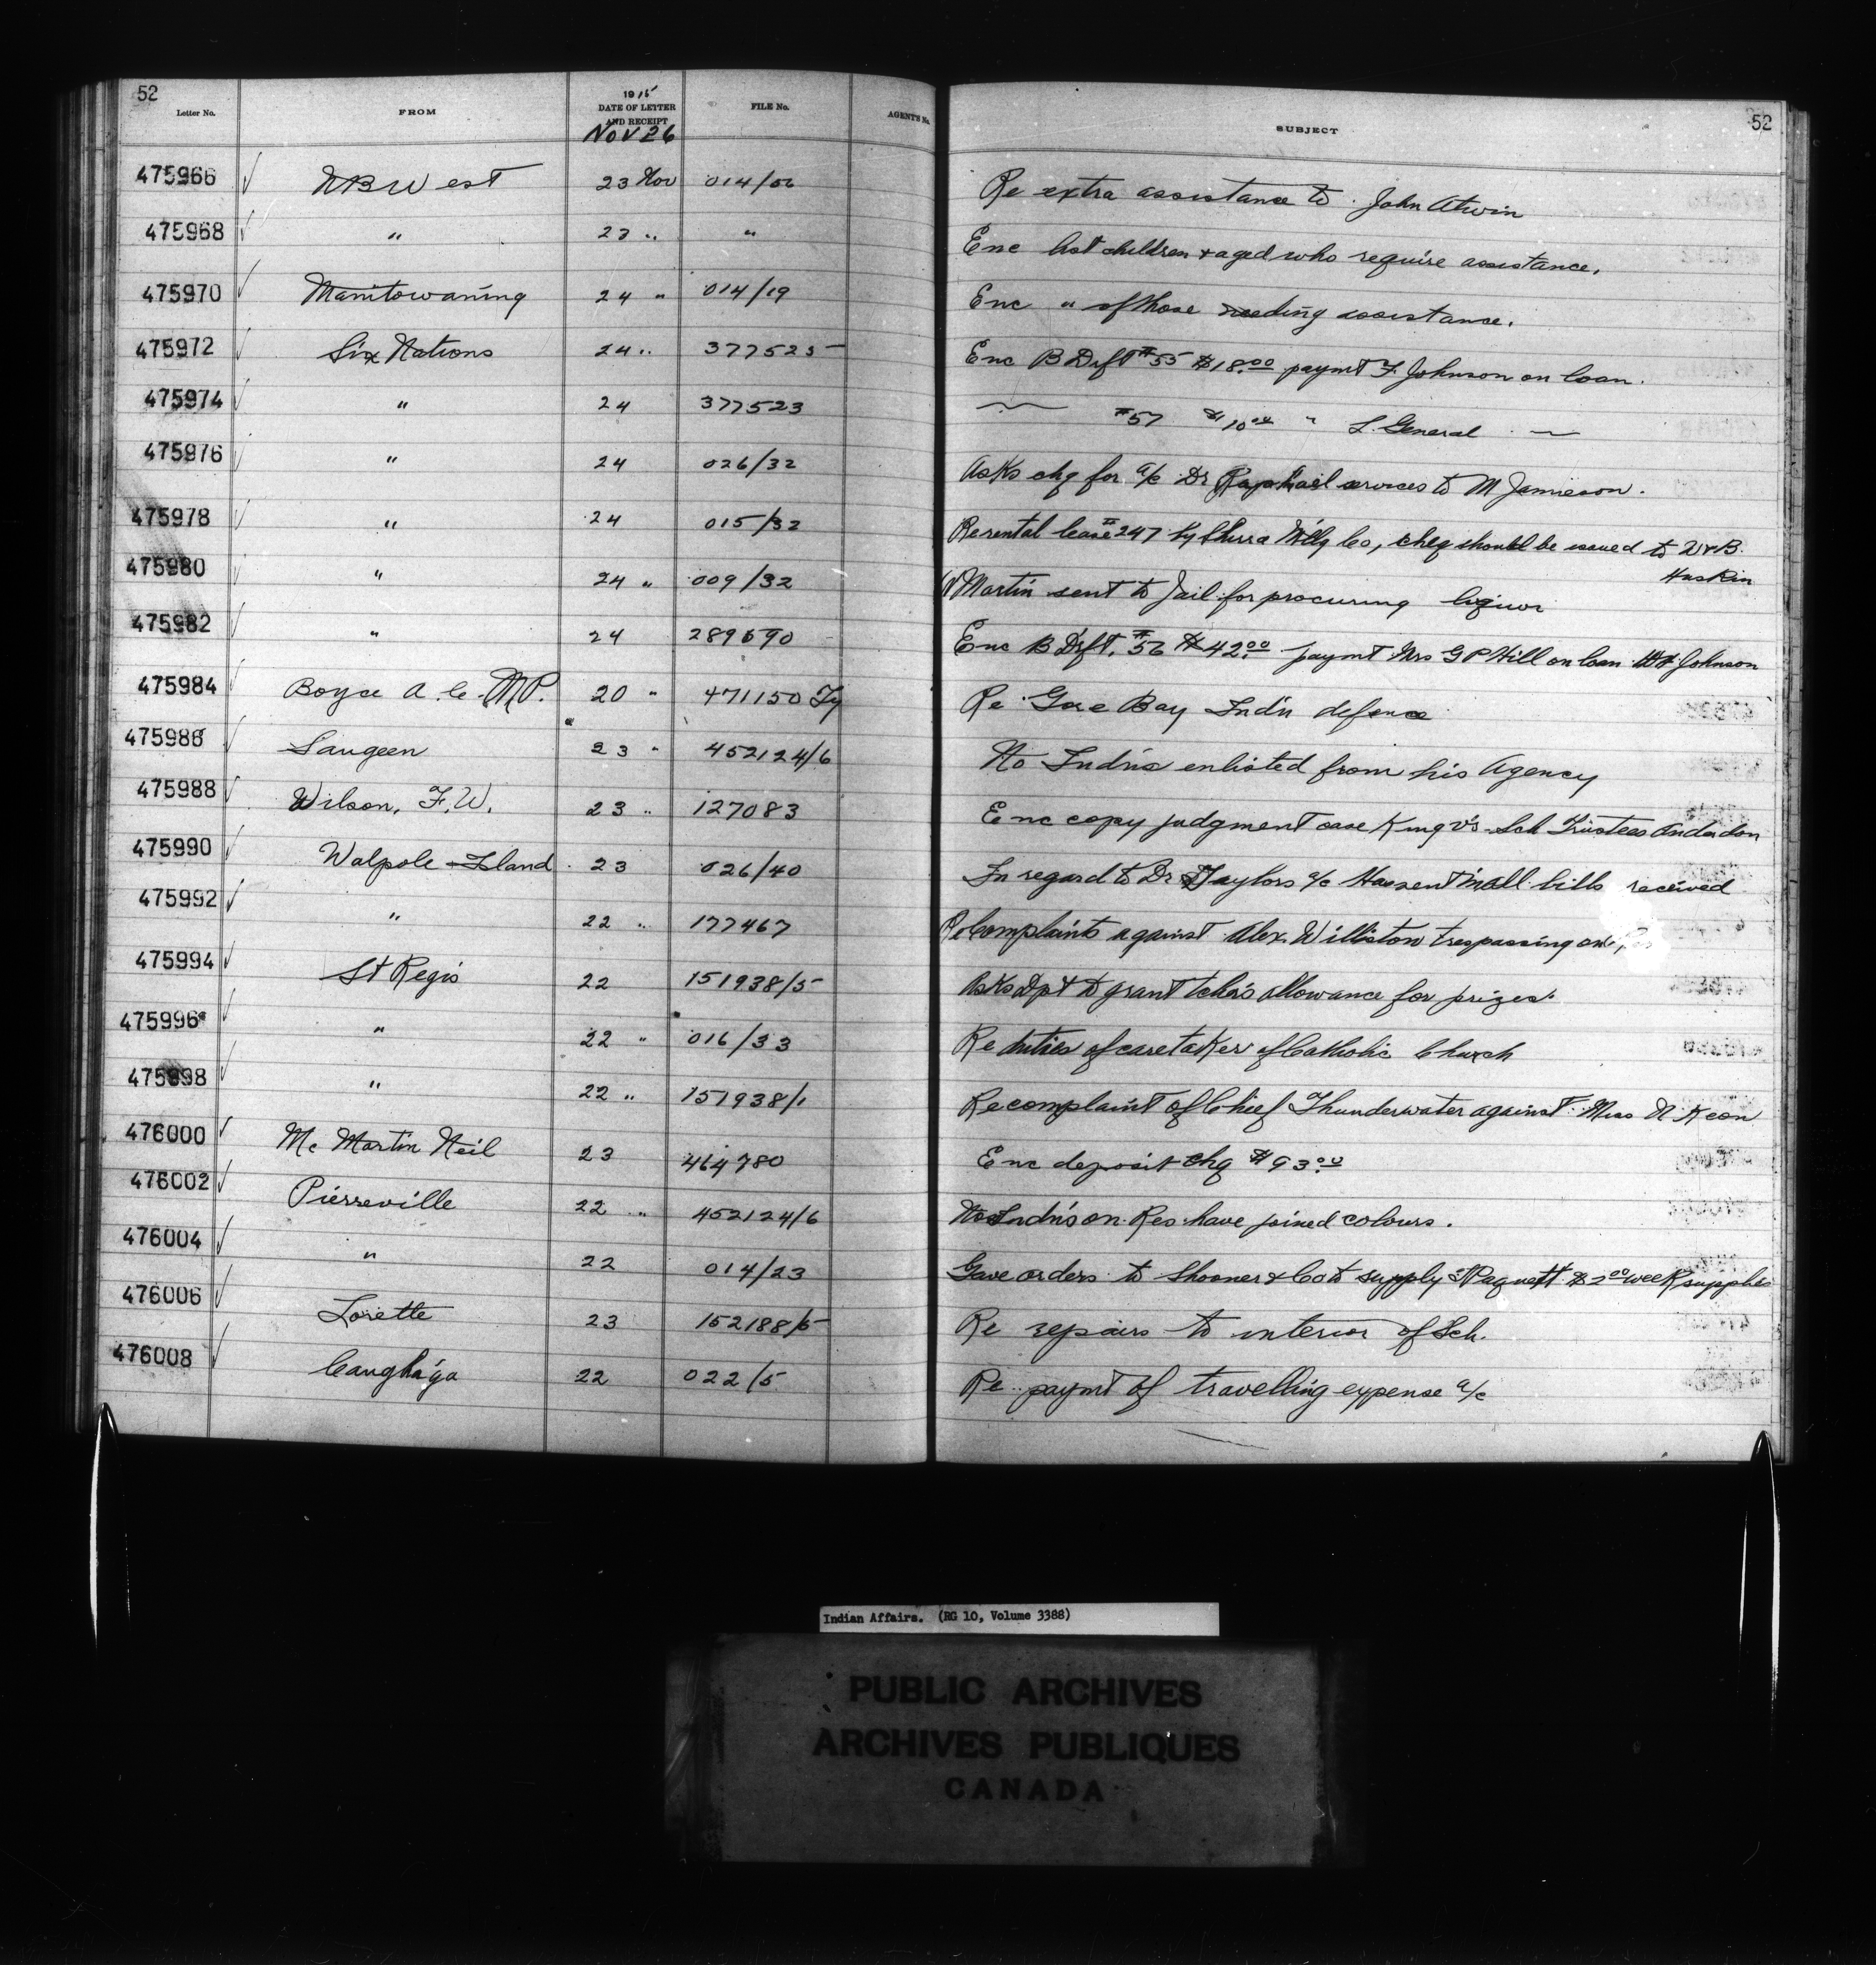 52
Letter No. FROM 1915 DATE OF LETTER AND RECEIPT FILE No. AGENT'S No. SUBJECT 52
NOV 26
475966 N B West 23 Nov 014/56 Re extra assistance to John Atwin
475968 " 23 " " Enc list children & aged who require assistance.
475970 Manitowaning 24 " 014/19 Enc " of those needing assistance.
475972 Six Nations 24 " 377525 Enc B Drft #55 $18.00 paymt F. Johnson on loan.
475974 " 24 377523 — #57 $10.00 " L. General —
475976 " 24 026/32 Asks chq for a/c Dr Raphael services to M Jamieson.
475978 " 24 015/32 Re rental lease #247 by Mfg Co, cheq should be issued to W & B.
Huskin
475980 " 24 " 009/32 Martin sent to Jail for procuring liquor
475982 " 24 289690 Enc B Drft. #56 $42.00 paymt Mrs G P Hill on loan Johnson
475984 Boyce A. C. M.P. 20 " 471150 Re Gore Bay Indn defence
475986 Saugeen 23 " 452124/6 No Indns enlisted from his Agency
475988 Wilson, F. W. 23 " 127083 Enc copy judgment case King vs Sch Trustees Anderdon
475990 Walpole Island 23 026/40 In regard to Dr Taylors a/c Has sent in all bills received
475992 " 22 " 177467 Re Complaints against Alex. Williston trespassing on
475994 St Regis 22 151938/5 Asks Dpt to grant tchrs allowance for prizes.
475996 " 22 " 016/33 Re duties of caretaker of Catholic Church
475998 " 22 " 151938/1 Re complaint of Chief Thunderwater against Miss N. Keon
476000 Mc Martin Neil 23 464780 Enc deposit chq $93.00
476002 Pierreville 22 " 452124/6 No Indns on Res have joined colours.
476004 " 22 014/23 Gave orders to Shooner & Co to supply Paquett $2.00 week supplies
476006 Lorette 23 152188/5 Re repairs to interior of Sch.
476008 Caughn'ga 22 022/5 Re paymt of travelling expense a/c
Indian Affairs. (RG 10, Volume 3388)
PUBLIC ARCHIVES
ARCHIVES PUBLIQUES
CANADA